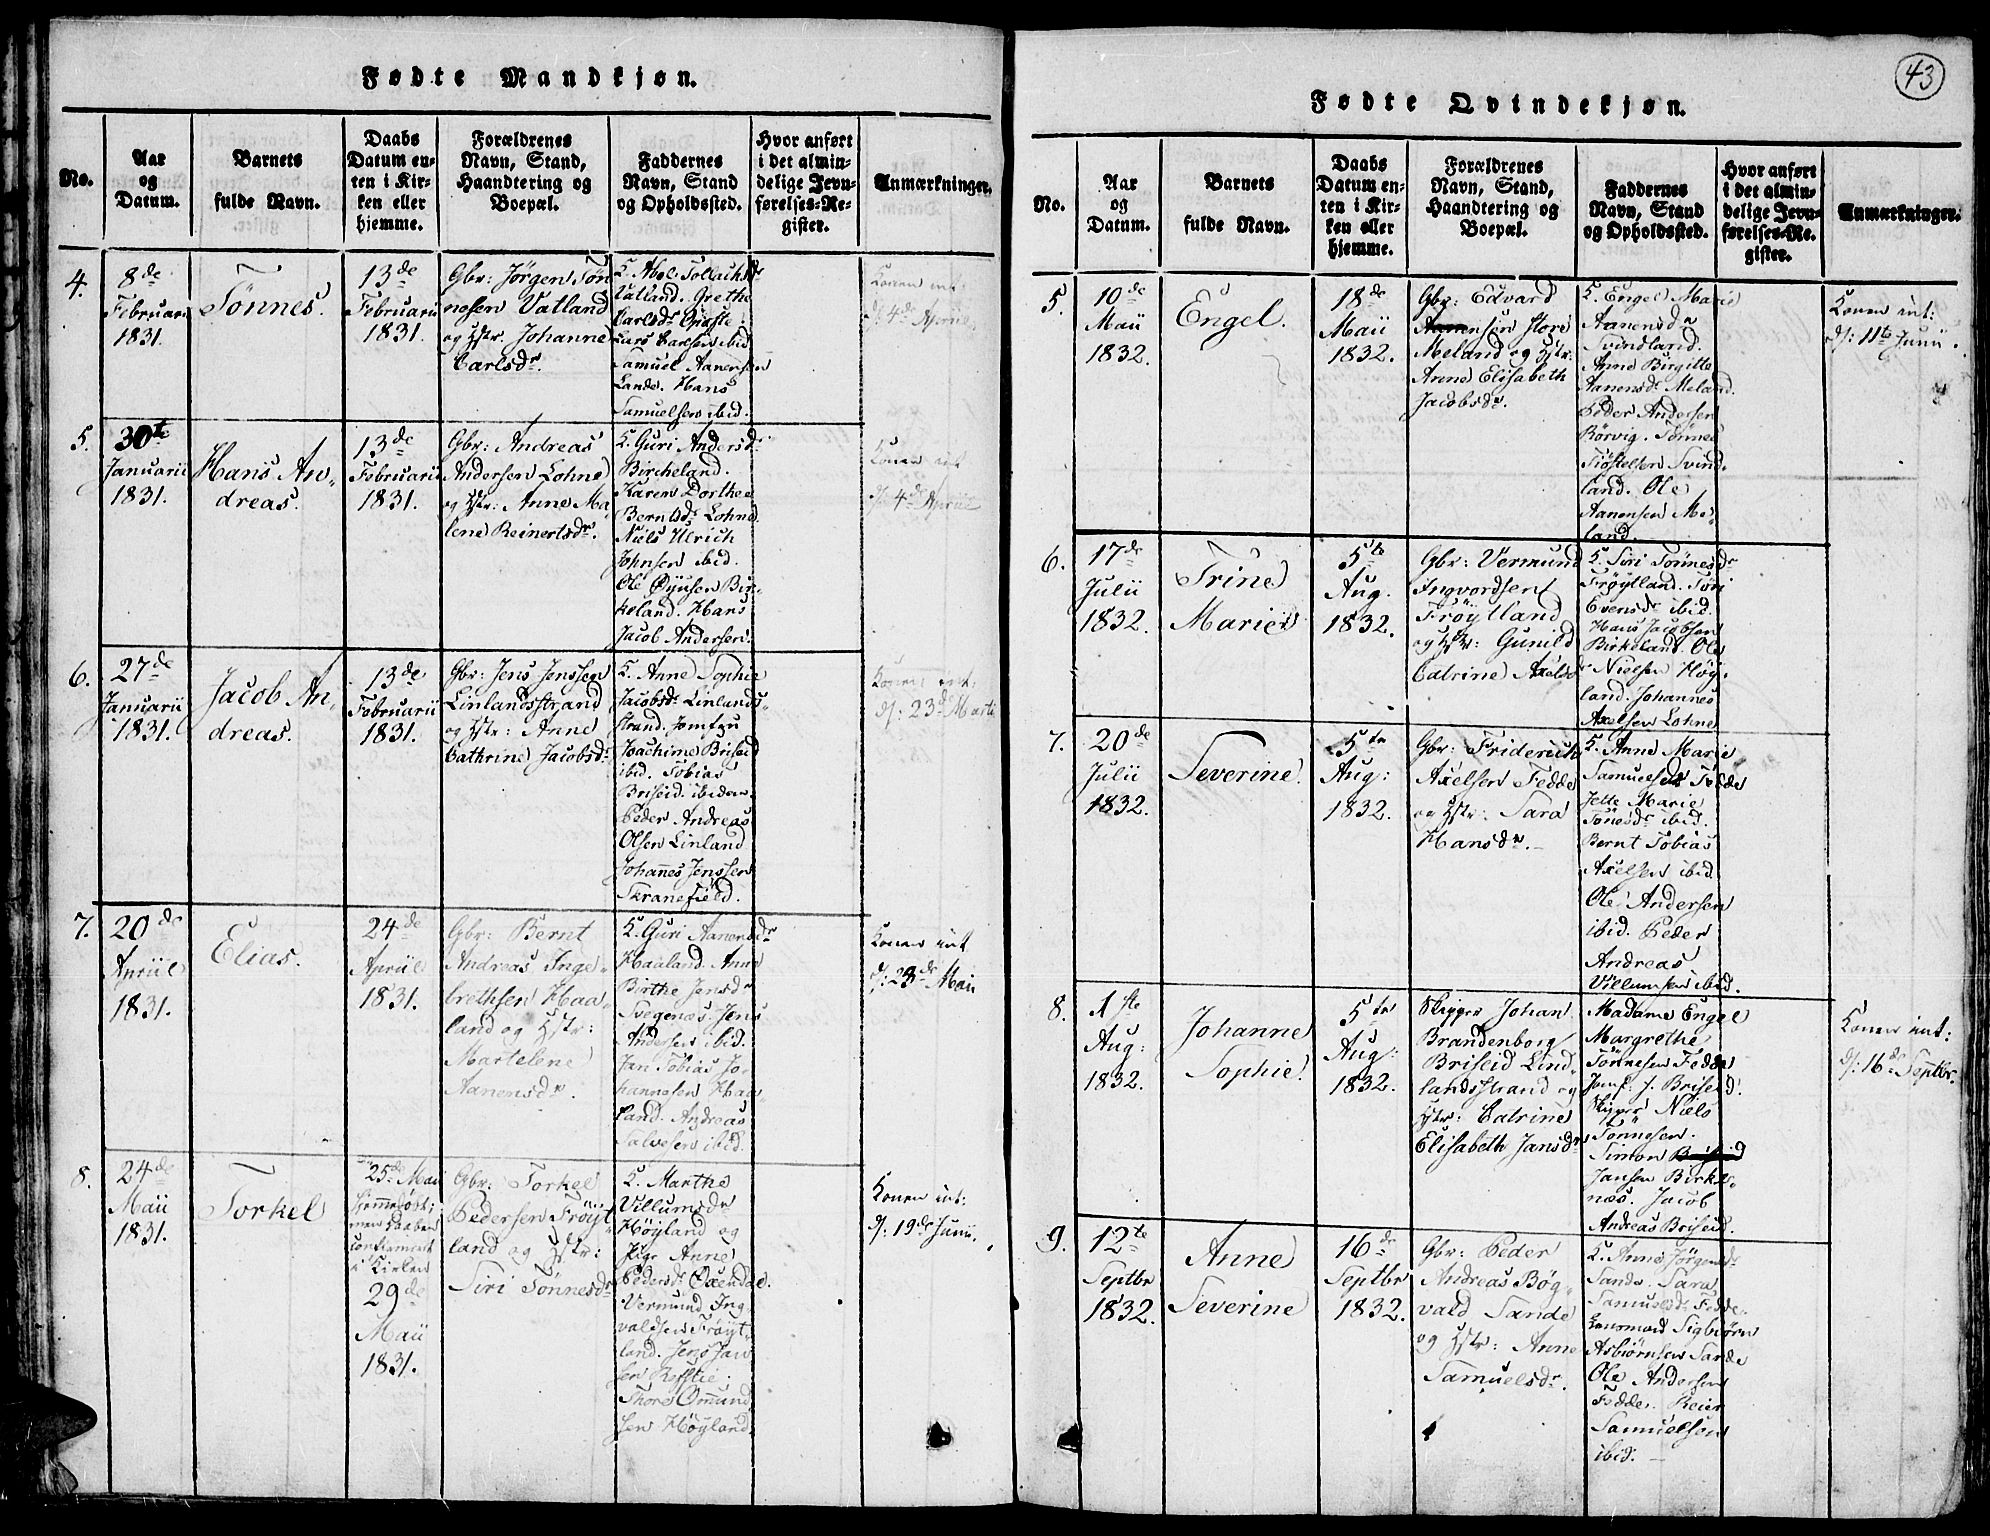 Fødte Mandkjøn.
No.
Aar
og
Datum.
Barnets
fulde Navn.
Daabs
Datum en-
ten i Kir-
ken eller
hjemme.
Forældrenes
Navn, Stand,
Haandtering og
Boepæl.
Faddernes
Navn, Stand
og Opholdssted.
Hvor anført
i det almin-
delige Jevn-
førelses-Re-
gister.
Anmærkninger.
4.
8de
Februarii
1831.
Tönnes.
13de
Februarii
1831.
Gbr: Jörgen Tön
nesen Vatland
og Hstr. Johanne
Carlsdr.
K. Abel Tollachsdr
Vatland. Grethe
Carlsdr
Lars Carlsen ibid
Samuel Aanensen
Lande. Hans
Samuelsen ibid.
Konen int:
d/: 4de Apriil
5.
30te
Januarii
1831.
Hans An-
dreas.
13de
Februarii
1831.
Gbr: Andreas
Andersen Lohne
og Hstr: Anne Ma-
lene Reinertsdr.
K. Guri Andersdr
Bircheland.
Karen Dorthea
Berntsdr Lohne.
Niels Ulrich
Johnsen ibid.
Ole Øyusen Bir-
keland. Hans
Jacob Andersen.
Konen int
d/: 4de Apriil
6.
27de
Januarii
1831.
Jacob An-
dreas.
13de
Februarii
1831.
Gbr: Jens Jenssen
Linlandsstrand
og Hstr: Anne
Cathrine Jacobsdr
K. Anne Sophie
Jacobsdr Linlands-
strand. Jomfru
Joachime Briseid
ibid. Tobias
Briseid. ibidem
Peder Andreas
Olsen Linland
Johannes Jenssen
Skranefield.
Konen int:
d/: 23de Marti
7.
20de
Apriil
1831.
Elias.
24de
Apriil
1831.
Gbr: Bernt
Andreas Inge-
brethsen Haa-
land og Hstr:
Martelene
Aanensdr.
K. Guri Aanensdr
Haaland. Anne
Birthe Jensdr
Svegenæs. Jens
Andersen ibid.
Jan Tobias Jo-
hannesen Haa-
land. Andreas
Salvesen ibid.
Konen int
d/: 23de Maii
8.
24de
Maii
1831.
Torkel
25de Mai
hjemmedöbt;
men Daaben
confirmeret
i Kirken
29de
Maii
1831.
Gbr: Torkel
Pedersen Fröyt-
land og Hstr:
Siri Tönnesdr
K. Marthe
Villumsdr
Höyland og
Pige Anne
Pedersdr Oxendal.
Vermund Ing
valdsen Fröyt-
land. Jens Jan
sen Refstie.
Thore Omund
sen Höyland
Konen int:
d/: 19de Junii.
43
Fødte Qvindekjøn.
No.
Aar
og
Datum.
Barnets
fulde Navn.
Daabs
Datum en-
ten i Kir-
ken eller
hjemme.
Forældrenes
Navn, Stand,
Haandtering og
Boepæl.
Faddernes
Navn, Stand
og Opholdssted.
Hvor anført
i det almin-
delige Jevn-
førelses-Re-
gister.
Anmærkninger.
5.
10de
Maii
1832.
Engel.
18de
Maii
1832.
Gbr: Edvard
Aanensen Store
Meland og Hstr:
Anne Elisabeth
Jacobsdr.
K. Engel Marie
Aanensdr
Svindland.
Anne Birgitte
Aanensdr Meland.
Peder Andersen
Rörvig. Tönnes
Tiöstelsen Svind-
land. Ole
Aanensen Me-
land.
Konen int:
d/: 11te Junii.
6.
17de
Julii
1832.
Trine
Marie
5te
Aug.
1832.
Gbr: Vermund
Ingvordsen
Fröytland
og Hstr: Gunild
Catrine Axelsdr
K. Siri Tönnesdr
Fröytland. Siri
Evensdr ibid.
Hans Jacobsen
Birkeland. Ole
Nielsen Höy-
land. Johannes
Axelsen Lohne
7.
20de
Julii
1832.
Severine.
5te
Aug:
1832.
Gbr: Friderich
Axelsen Fedde
og Hstr: Sara
Hansdr.
K. Anne Marie
Samuelsdr Fedde
Jette Marie
Tönesdr ibid.
Bernt Tobias
Axelsen ibid.
Ole Andersen
ibid. Peder
Andreas
Villumsen ibid.
8.
1ste
Aug:
1832.
Johanne
Sophie.
5te
Aug:
1832.
Skipper Johan
Brandenborg
Briseid Lind-
landsstrand og
Hstr: Catrine
Elisabeth Jansdr
Madame Engel
Margrethe
Tönnesen Fedde
Jomf: J. Briseid.
Skipper Niels
Tönnesen.
Simon Briseid
Jansen Birke-
næs. Jacob
Andreas Briseid.
Konen int:
d/: 16de Septbr.
9.
12te
Septbr
1832.
Anne
Severine
16de
Septbr
1832.
Gbr: Peder
Andreas Bög-
vald Sande
og Hstr: Anne
Samuelsdr.
K. Anne Jörgensdr
Sande. Sara
Samuelsdr Fedde.
Lensmand Sigbiörn
Asbiörnsen Sande
Ole Andersen
Fedde. Reier
Samuelsen
ibid.